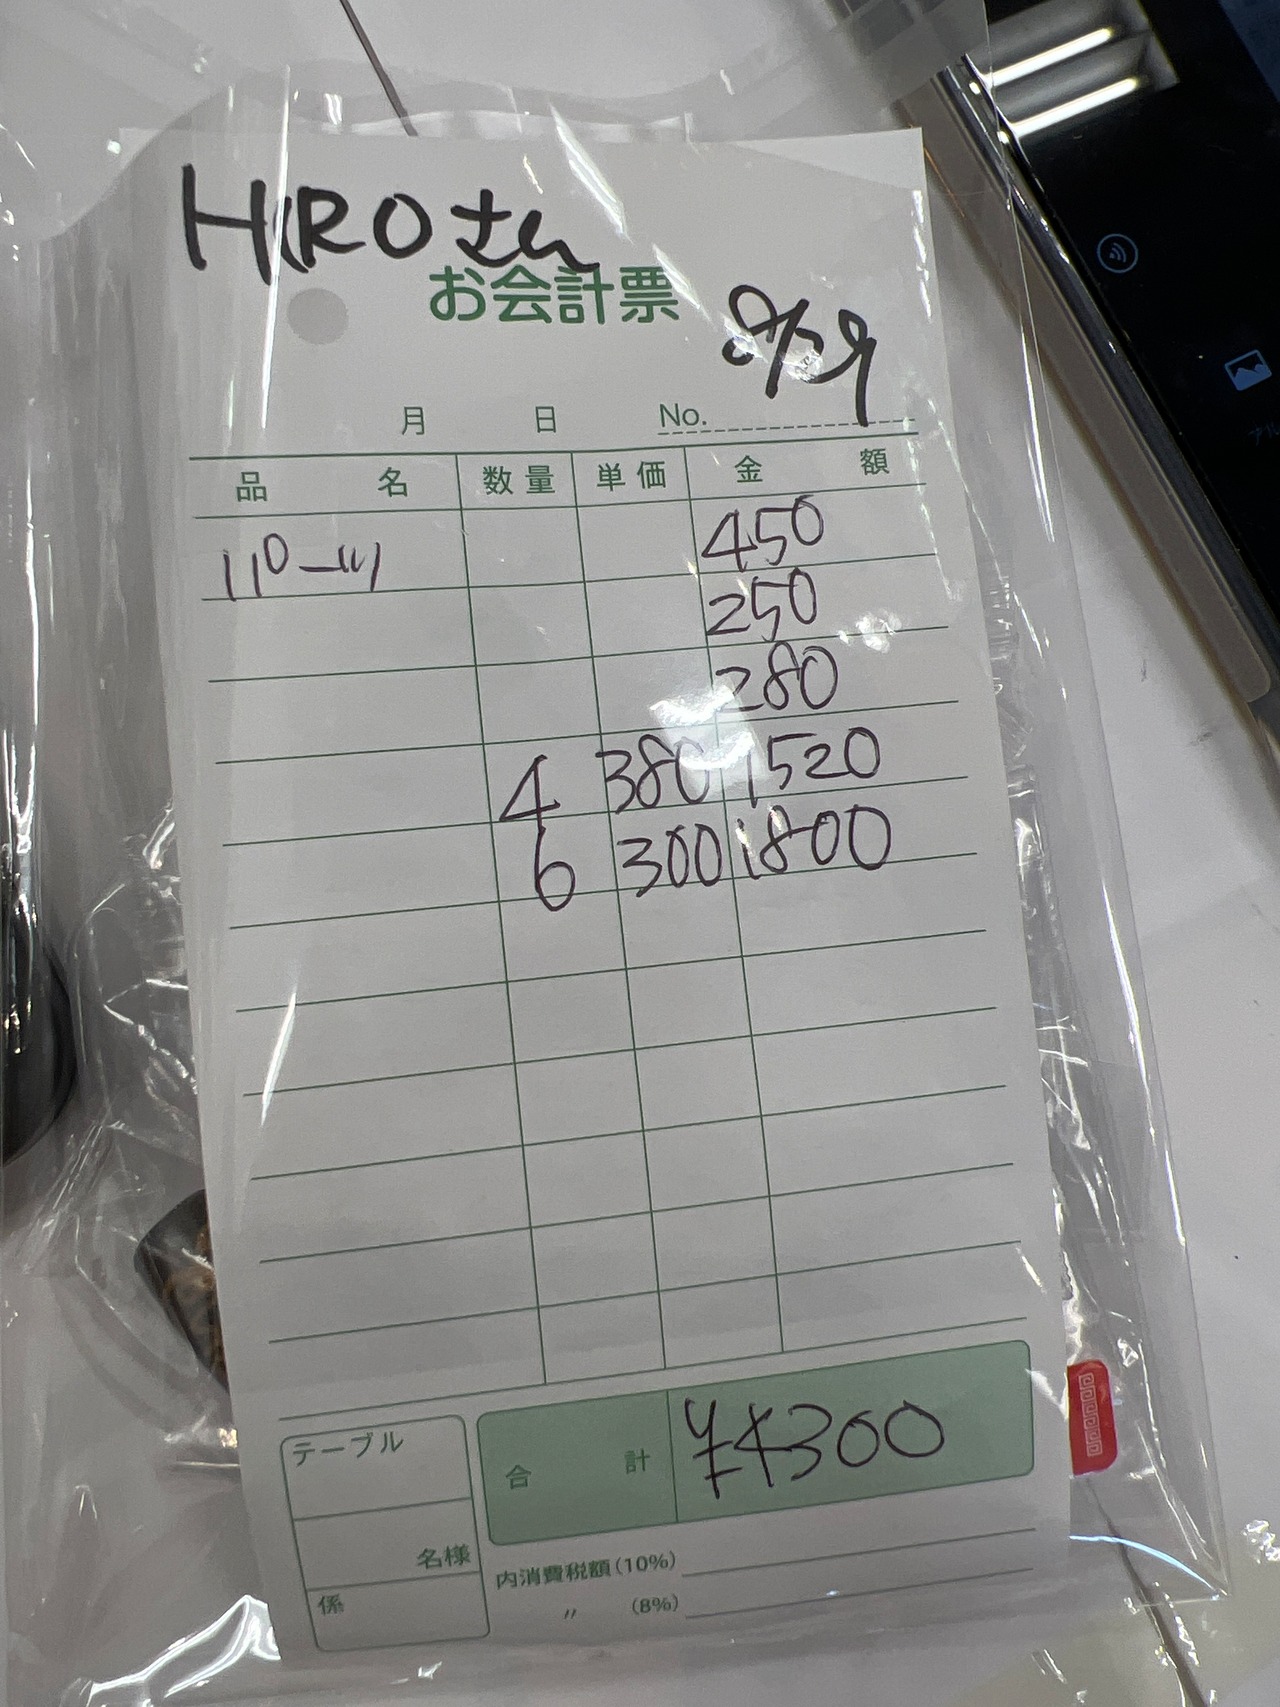 HIROさん
お会計票
8/29
月 日 No.
品名 数量 単価 金額
パーツ 450
250
280
4 380 1520
6 300 1800
合計 ¥4300
テーブル
名様
係
内消費税額(10%)
〃 (8%)